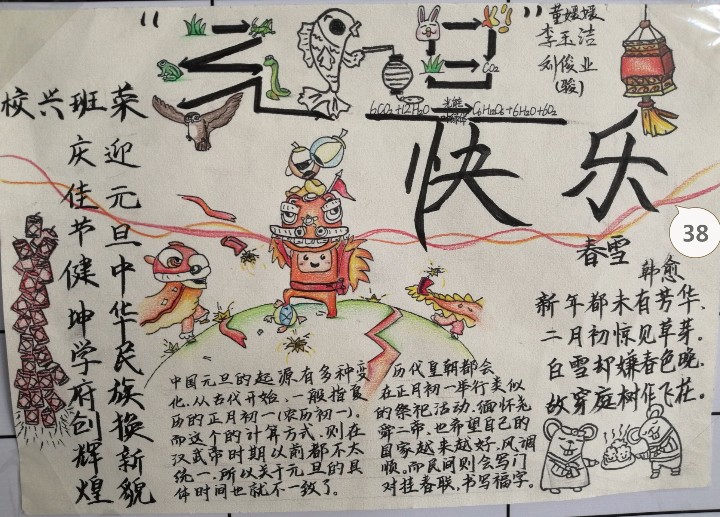 “元旦”
快乐
董媛媛
李玉洁
刘俊业
(骏)
CO₂
光能
叶绿体
6CO₂+12H₂O → C₆H₁₂O₆+6H₂O+6O₂
校兴班菜
迎元旦中华民族换新貌
庆佳节健坤学府创辉煌
38
春雪
韩愈
新年都未有芳华,
二月初惊见草芽。
白雪却嫌春色晚,
故穿庭树作飞花。
中国元旦的起源有多种变
化,从古代开始,一般指夏
历的正月初一(农历初一)。
而这个的计算方式,则在
汉武帝时期以前都不太
统一.所以关于元旦的具
体时间也就不一致了。
历代皇朝都会
在正月初一举行类似
的祭祀活动.缅怀尧
舜二帝.也希望自己的
国家越来越好.风调
顺。而民间则会写门
对挂春联,书写福字。